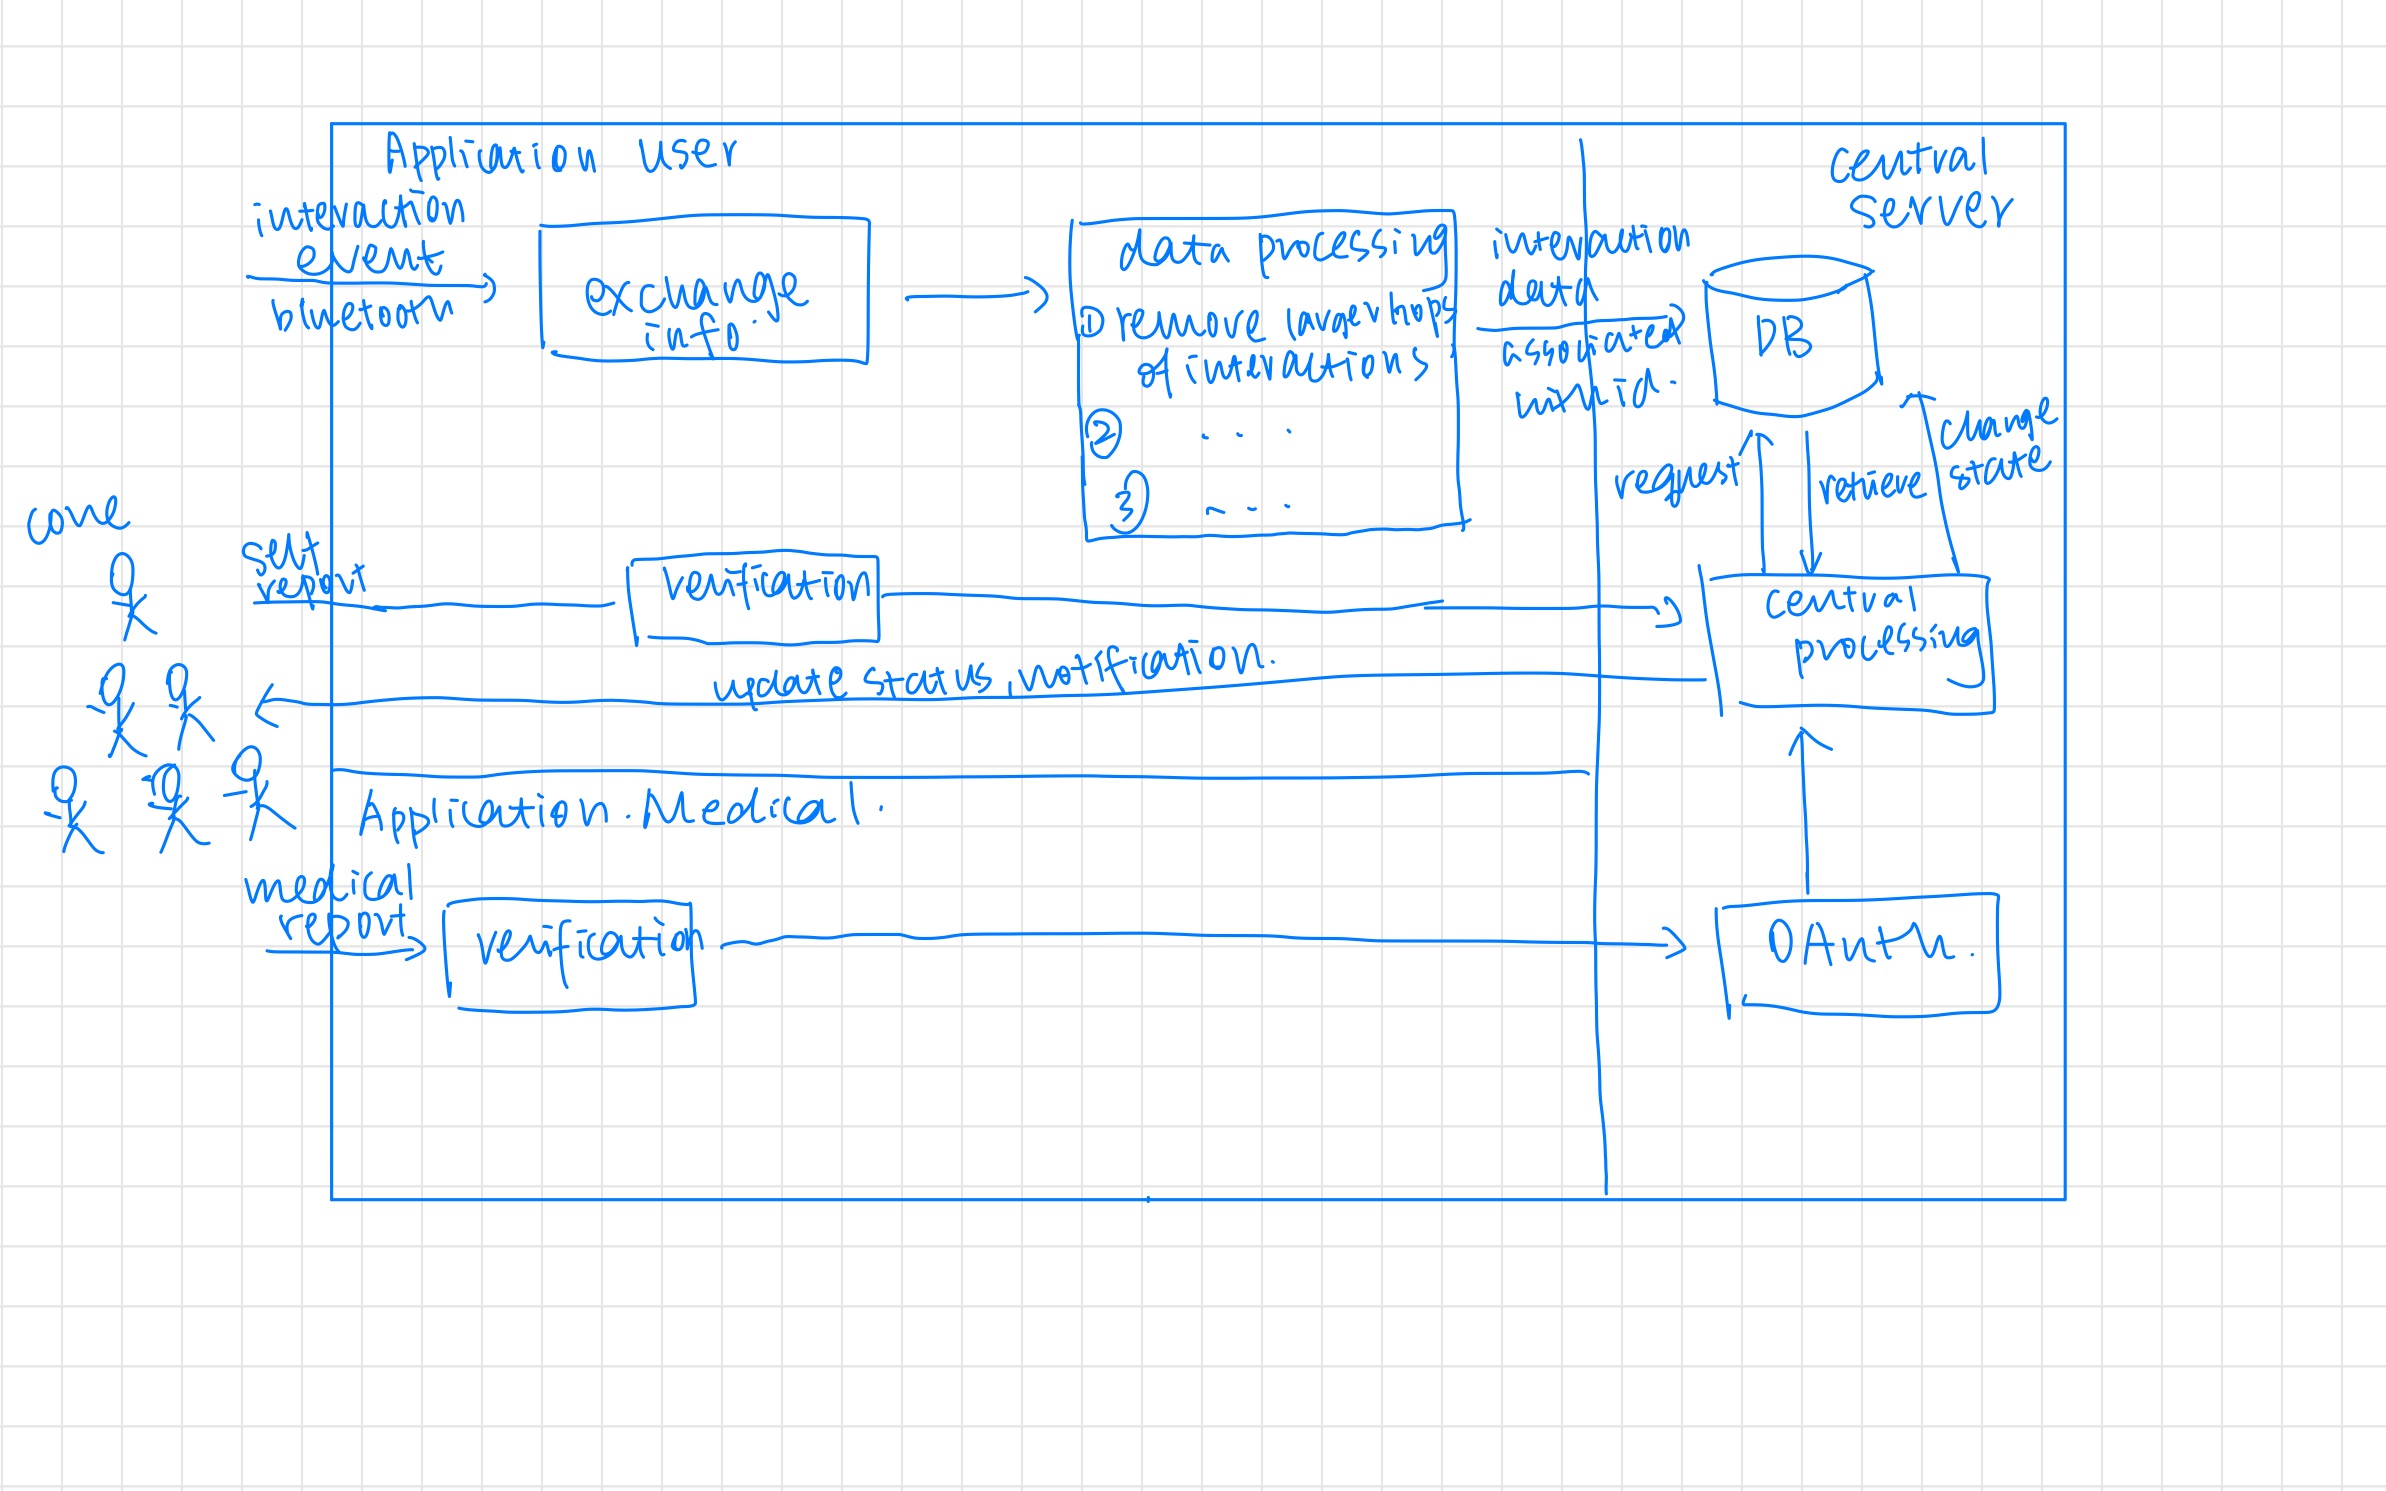 Application user
central
server
interaction
event
bluetooth
exchange
info.
data processing
① remove
of interactions
② ...
③ ...
interaction
data
associated
with id.
DB
request
retrieve
change
state
self
report
verification
central
processing
update status, notification.
Application Medical.
medical
report
verification
OAuth.